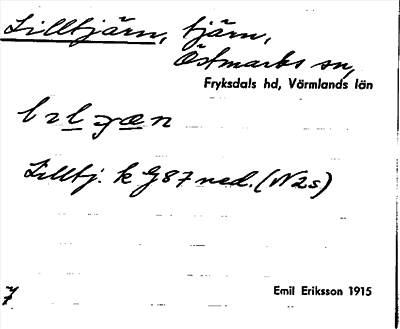 Lilltjärn, tjärn,
Östmarks sn,
Fryksdals hd, Värmlands län
Lilltj. k G87 ned. (N2s)
7
Emil Eriksson 1915